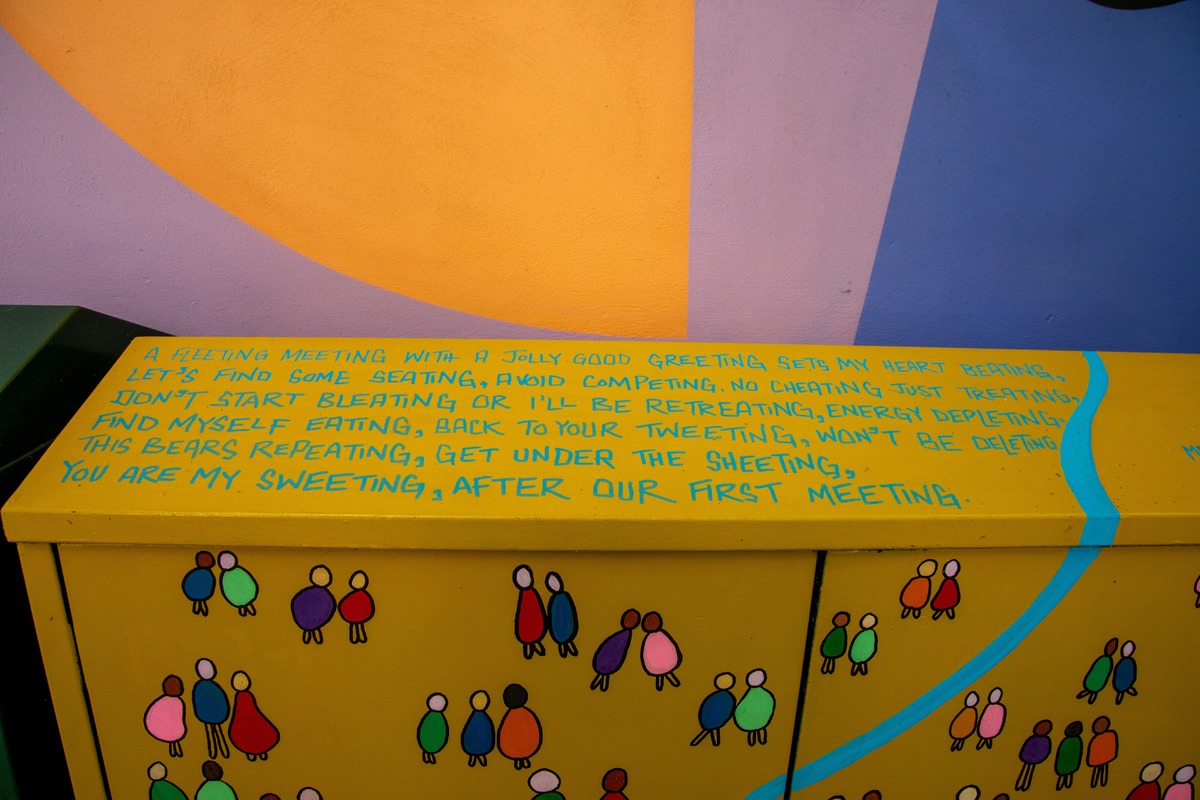 A FLEETING MEETING WITH A JOLLY GOOD GREETING SETS MY HEART BEATING,
LET'S FIND SOME SEATING, AVOID COMPETING. NO CHEATING JUST TREATING,
DON'T START BLEATING OR I'LL BE RETREATING, ENERGY DEPLETING.
FIND MYSELF EATING, BACK TO YOUR TWEETING, WON'T BE DELETING
THIS BEARS REPEATING, GET UNDER THE SHEETING,
YOU ARE MY SWEETING, AFTER OUR FIRST MEETING.